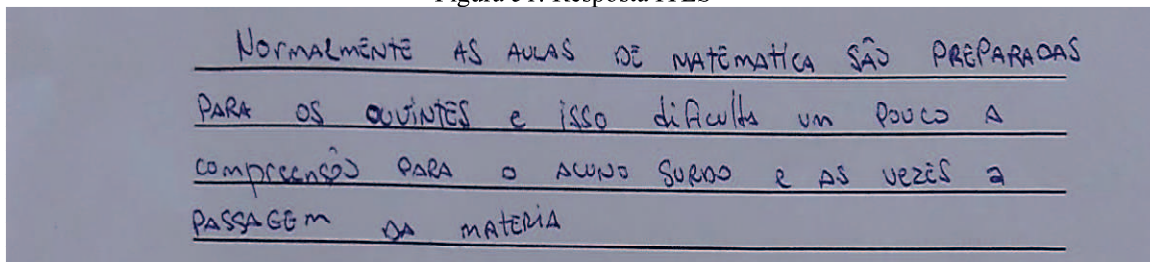 NORMALMENTE AS AULAS DE MATEMATICA SÃO PREPARADAS
PARA OS OUVINTES e iSSO dificulta um POUCO A
compreensão PARA o ALUNO SURDO e AS VEZES a
PASSAGEM DA MATERIA